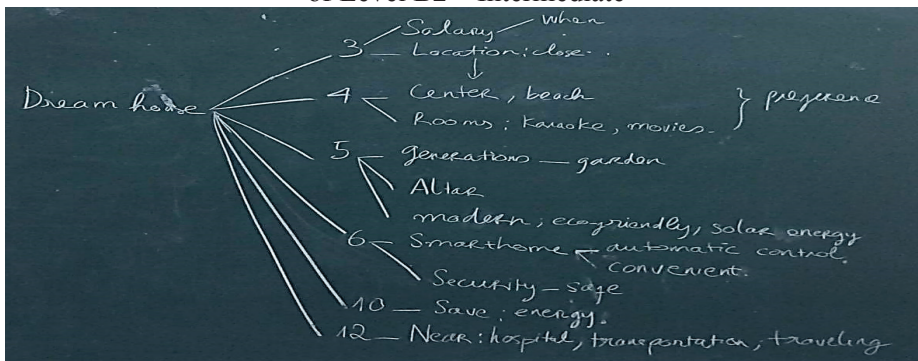 of Level B2 – Intermediate
Salary — when
3 — Location: close..
Dream house
4 — Center, beach
Rooms: karaoke, movies.
} preference
5 — generations — garden
Altar
modern, ecofriendly, solar energy
6 — Smarthome — automatic control.
convenient.
Security — safe
10 — Save: energy.
12 — Near: hospital, transportation, traveling